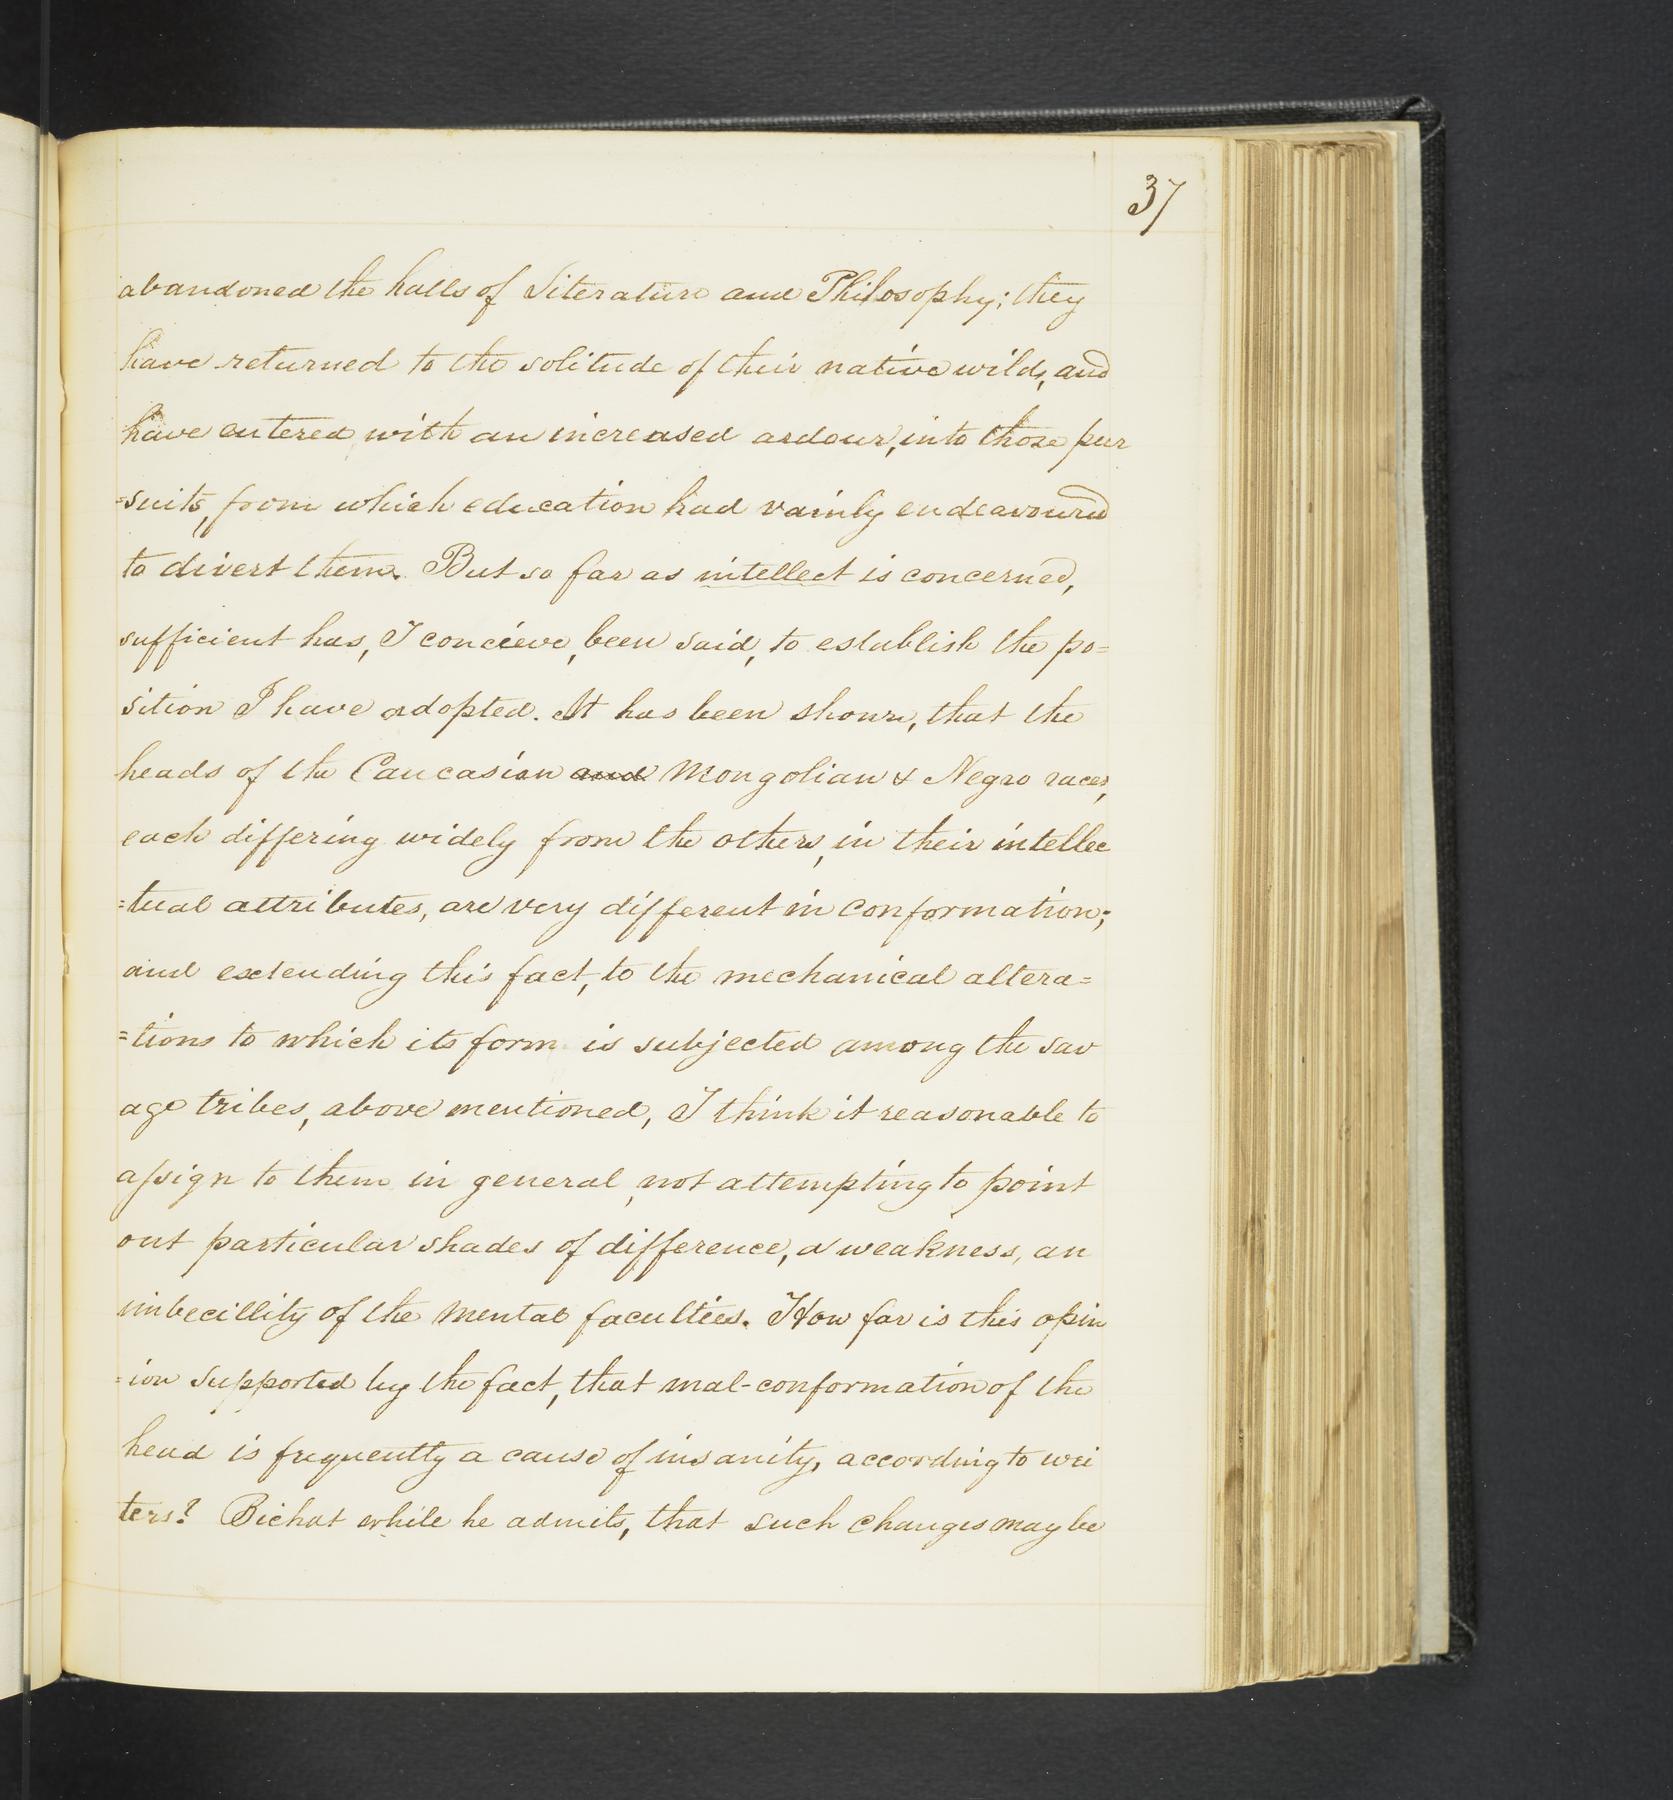 37
abandoned the halls of Literature and Philosophy; they
have returned to the solitude of their native wilds, and
have entered, with an increased ardour, into those pur
=suits, from which education had vainly endeavoured
to divert them. But so far as intellect is concerned,
sufficient has, I concieve, been said, to establish the po=
sition I have adopted. It has been shown, that the
heads of the Caucasian and Mongolian & Negro races,
each differing widely from the others, in their intellec
=tual attributes, are very different in conformation;
and extending this fact, to the mechanical altera=
=tions to which its form is subjected among the sav
age tribes, above mentioned, I think it reasonable to
assign to them in general, not attempting to point
out particular shades of difference, a weakness, an
imbecillity of the mental faculties. How far is this opin
=ion supported by the fact, that mal-conformation of the
head is frequently a cause of insanity, according to wri
ters? Bichat while he admits, that such changes may be